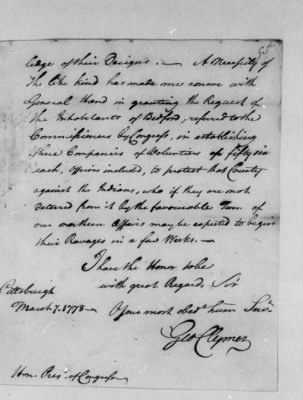 55
ledge of their Designs. — A Necessity of
the like kind has made me concur with
General Hand in granting the Request of
the Inhabitants of Bedford, referred to the
Commissioners by Congress, in establishing
three Companies of Volunteers of fifty six
each, Officers included, to protect that County
against the Indians, who if they are not
deterred from it by the favourable Turn of
our northern Affairs may be expected to begin
their Ravages in a few Weeks. —
I have the Honor to be
with great Regard, Sir
Pittsburgh
March 7. 1778 —
Your most obedt. hum Servt.
Geo Clymer
Hon. Prest. of Congress